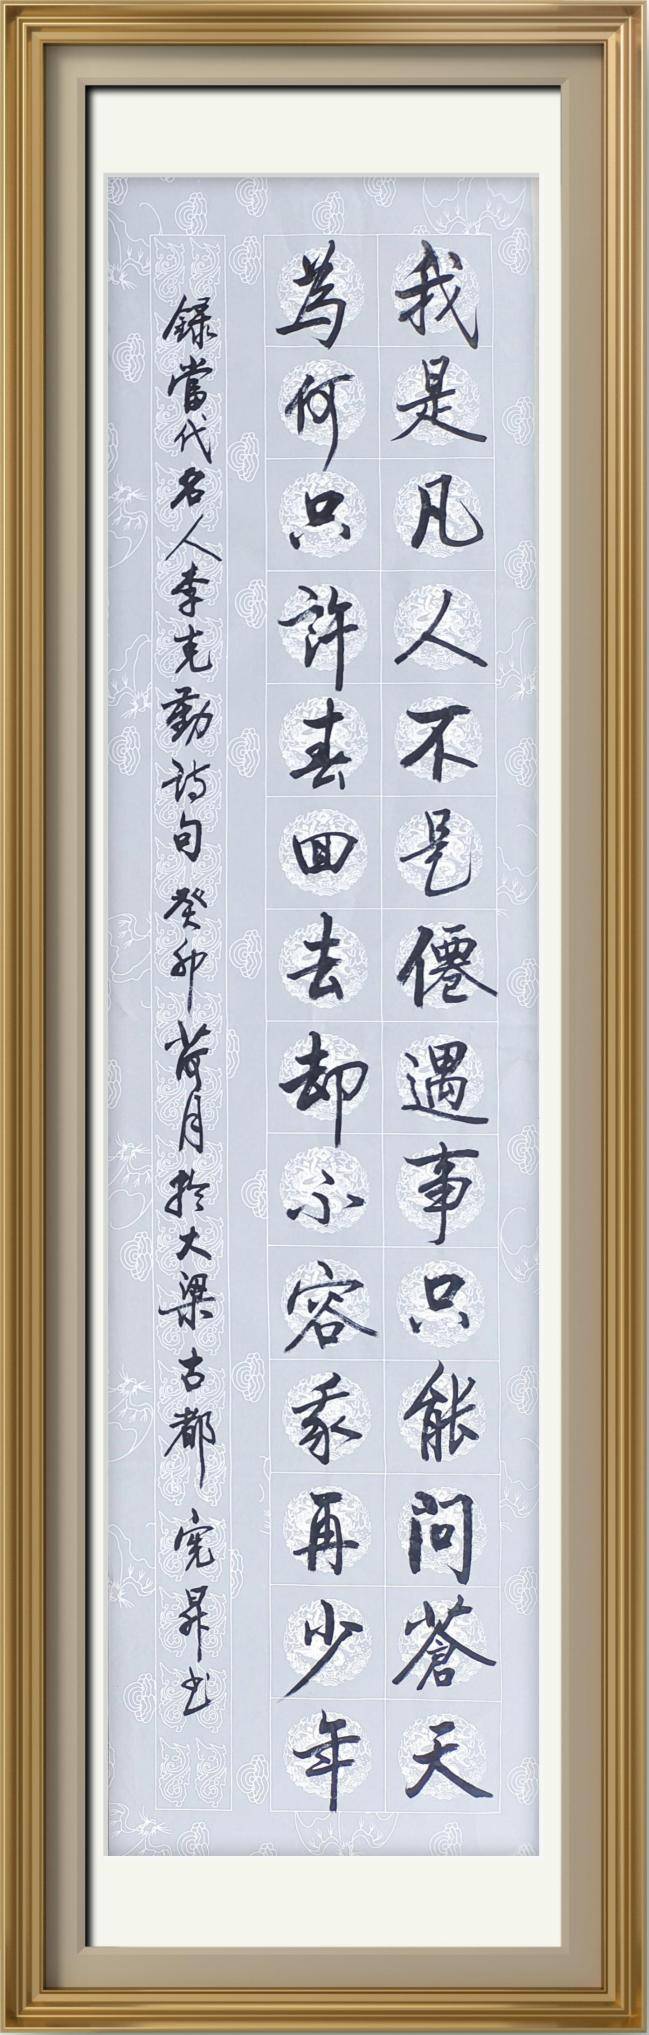 我是凡人不是僊遇事只能问蒼天
為何只許春回去却不容我再少年
録當代名人李克勤诗句癸卯荷月於大梁古都宪昇书